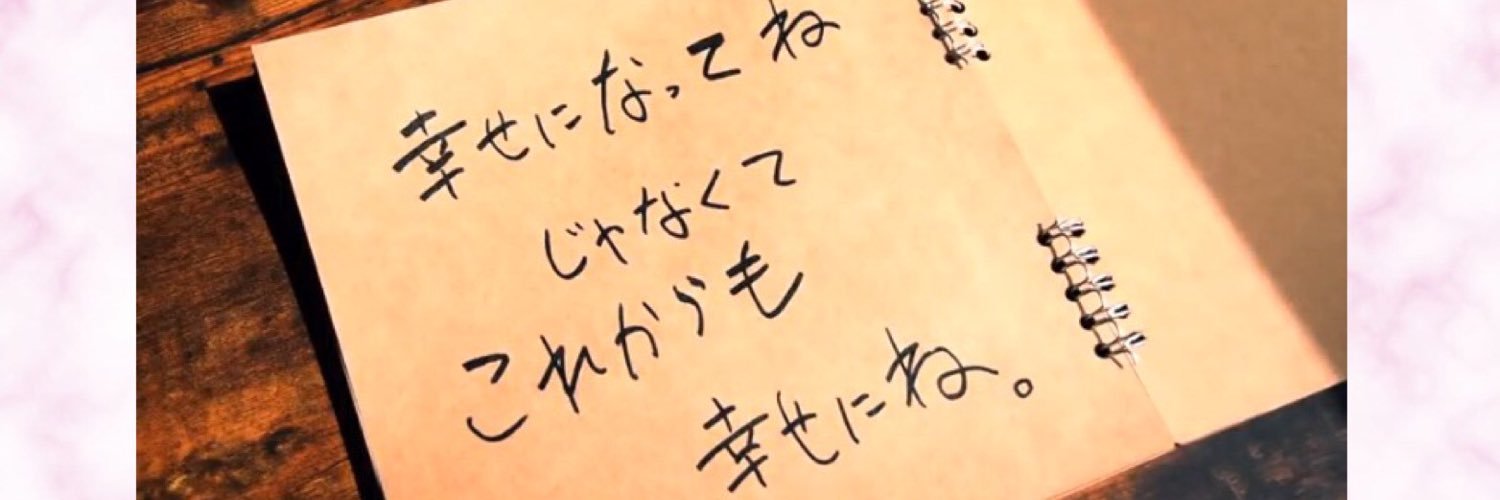 幸せになってね
じゃなくて
これからも
幸せにね。